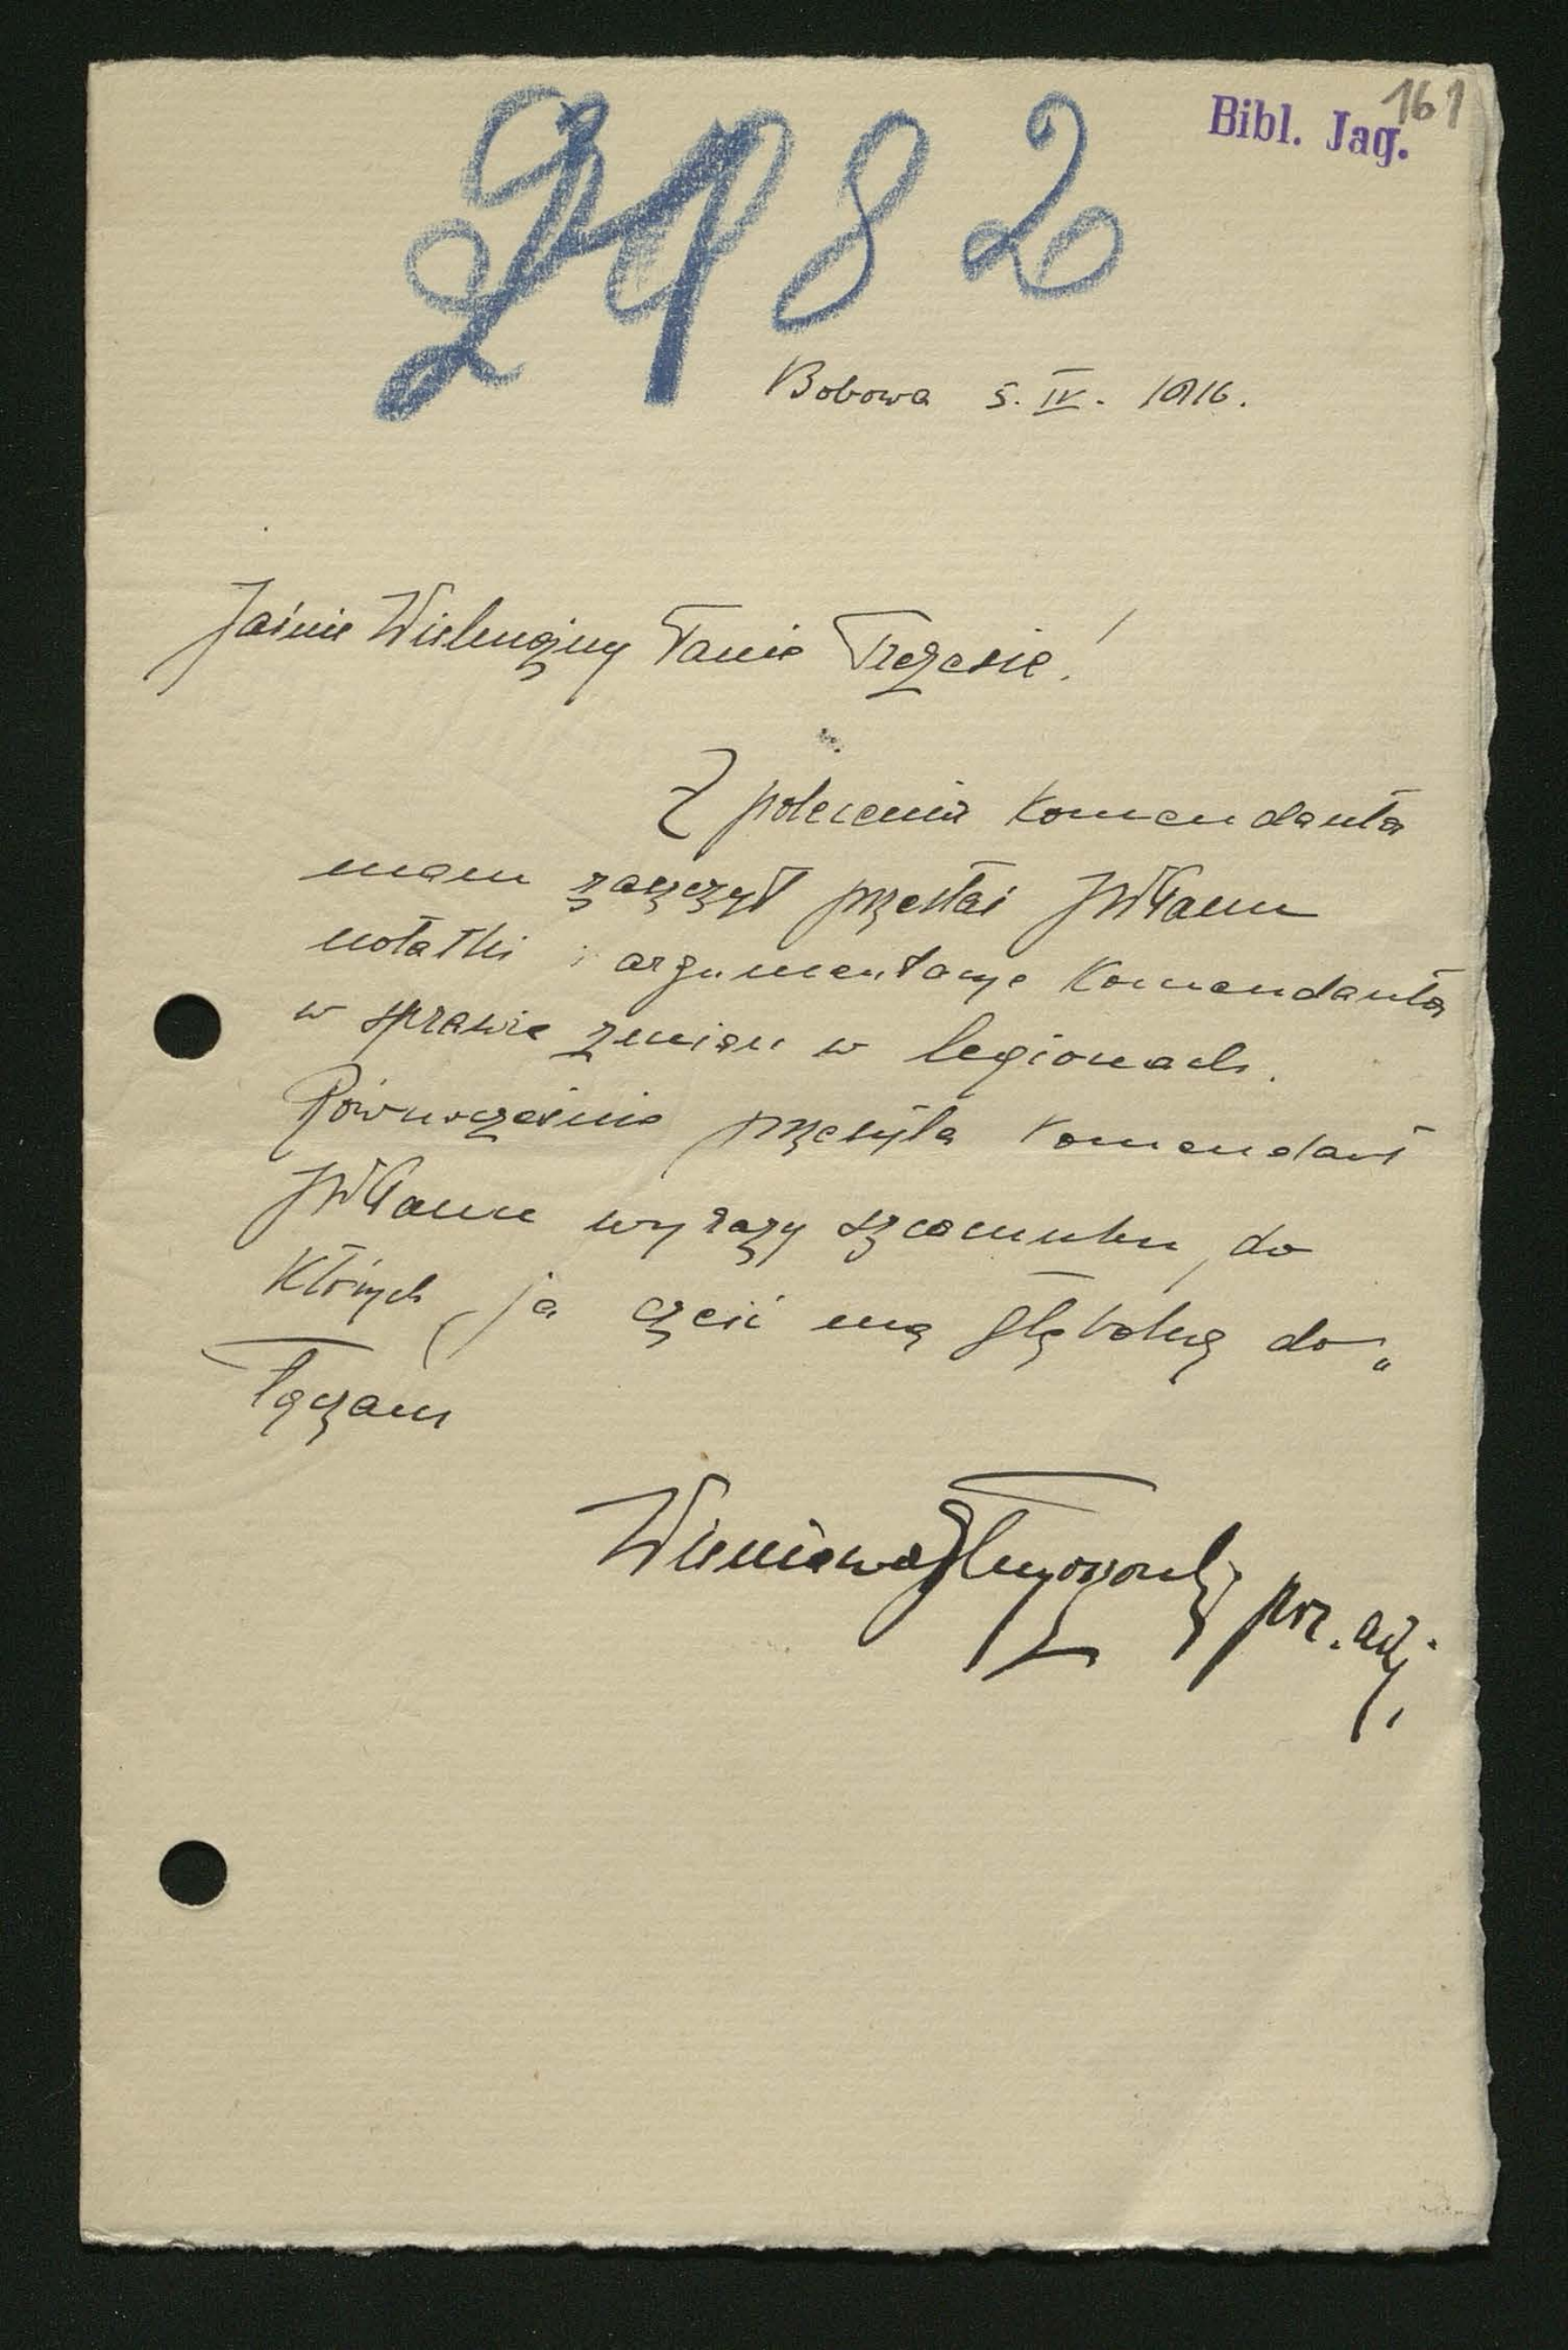 161
Bibl. Jag.
2182
Bobowa 5. IV. 1916.
Jaśnie Wielmożny Panie Prezesie!
Z polecenia Komendanta
mam zaszczyt przesłać JWPanu
notatki i argumentacye Komendanta
w sprawie zmian w legionach.
Równocześnie przesyła Komendant
JWPanu wyrazy szacunku, do
których ja cześć mą głęboką do„
łączam
Wieniawa Długoszowski por. adj.